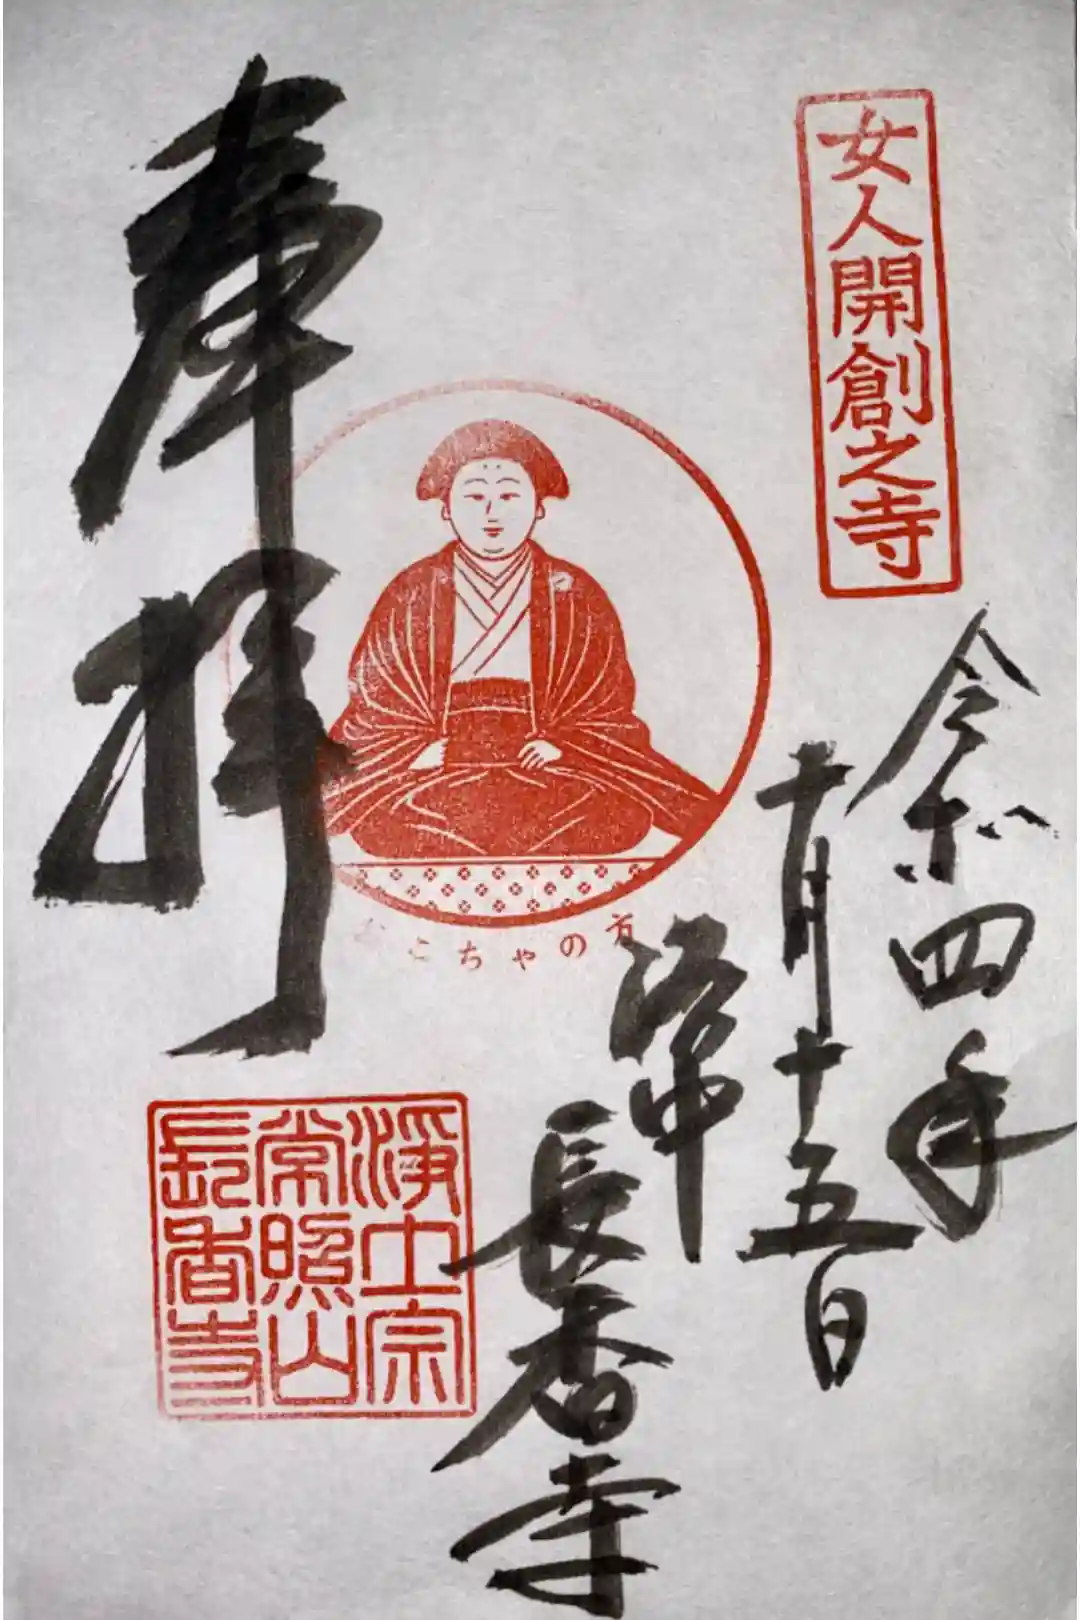 女人開創之寺
令和四年
十月十五日
洛中
長香寺
奉拝
おこちゃの方
淨土宗
常照山
長香寺